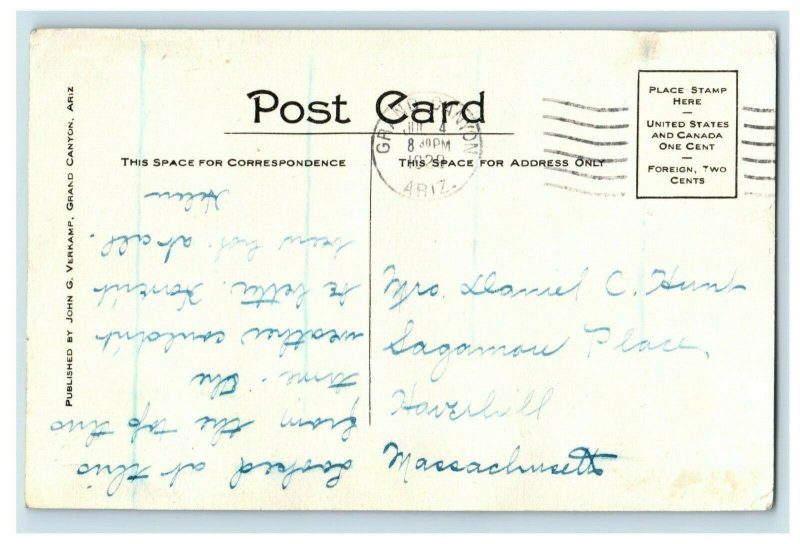 Post Card
THIS SPACE FOR CORRESPONDENCE
THIS SPACE FOR ADDRESS ONLY
PLACE STAMP
HERE
UNITED STATES
AND CANADA
ONE CENT
FOREIGN, TWO
CENTS
GRAND CANYON
JUL 4
8 30PM
1929
ARIZ.
PUBLISHED BY JOHN G. VERKAMP, GRAND CANYON, ARIZ
Looked at this
from the top this
time. The
weather couldn't
be better. Haven't
been hot at all.
Helen
Mrs. Daniel C. Hunt
Sagamore Place,
Haverhill
Massachusetts